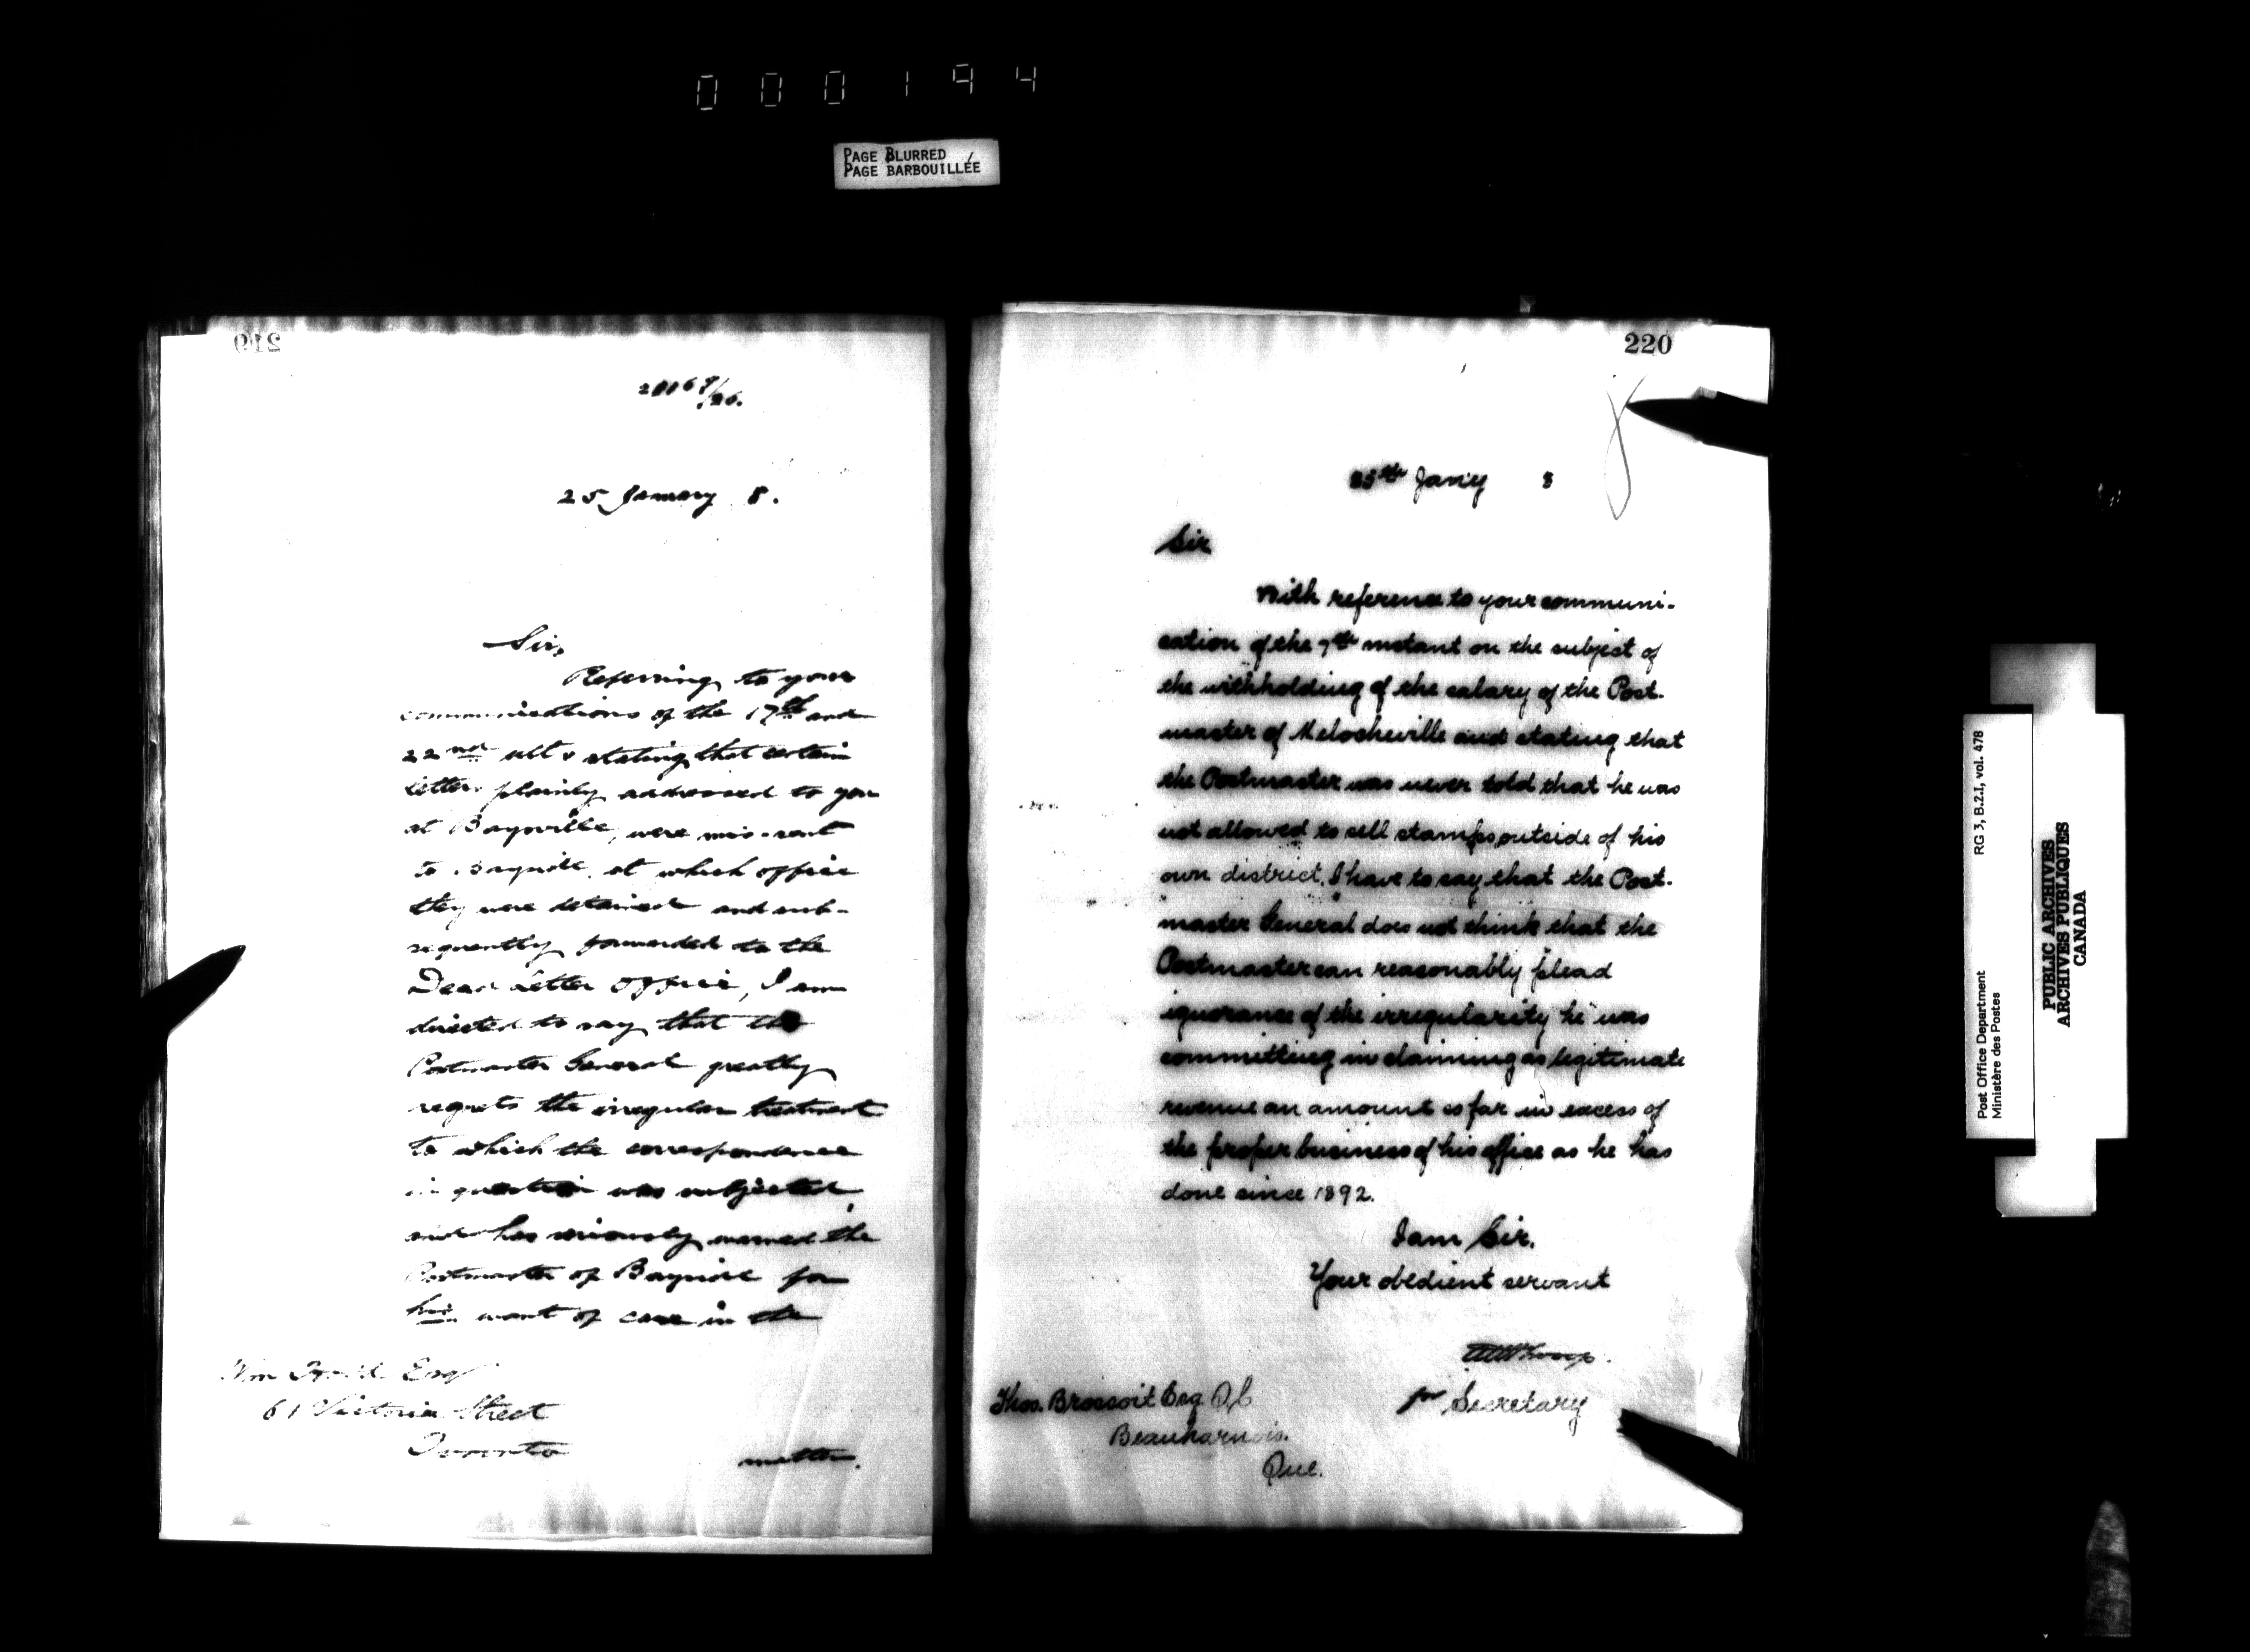 000194
PAGE BLURRED
PAGE BARBOUILLÉE
219
25 January 8.
Sir,
Referring to your
communications of the 17th and
22nd ult & stating that certain
letters plainly addressed to you
at Baysville, were mis-sent
to Bayside, at which office
they were detained and sub-
sequently forwarded to the
Dead Letter Office, I am
directed to say that the
Postmaster General greatly
regrets the irregular treatment
to which the correspondence
in question was subjected,
and has seriously warned the
Postmaster of Bayside for
his want of care in the
matter.
Wm Esq
61 Victoria Street
Toronto
220
25th Jan'y 8
Sir
With reference to your communi-
cation of the 7th instant on the subject of
the withholding of the salary of the Post-
master of Melocheville and stating that
the Postmaster was never told that he was
not allowed to sell stamps outside of his
own district, I have to say that the Post-
master General does not think that the
Postmaster can reasonably plead
ignorance of the irregularity he was
committing in claiming as legitimate
revenue an amount so far in excess of
the proper business of his office as he has
done since 1892.
I am Sir,
Your obedient servant
for Secretary
Thos. Brossoit Esq Q C
Beauharnois.
Que.
Post Office Department
Ministère des Postes
RG 3, B.2.I, vol. 478
PUBLIC ARCHIVES
ARCHIVES PUBLIQUES
CANADA